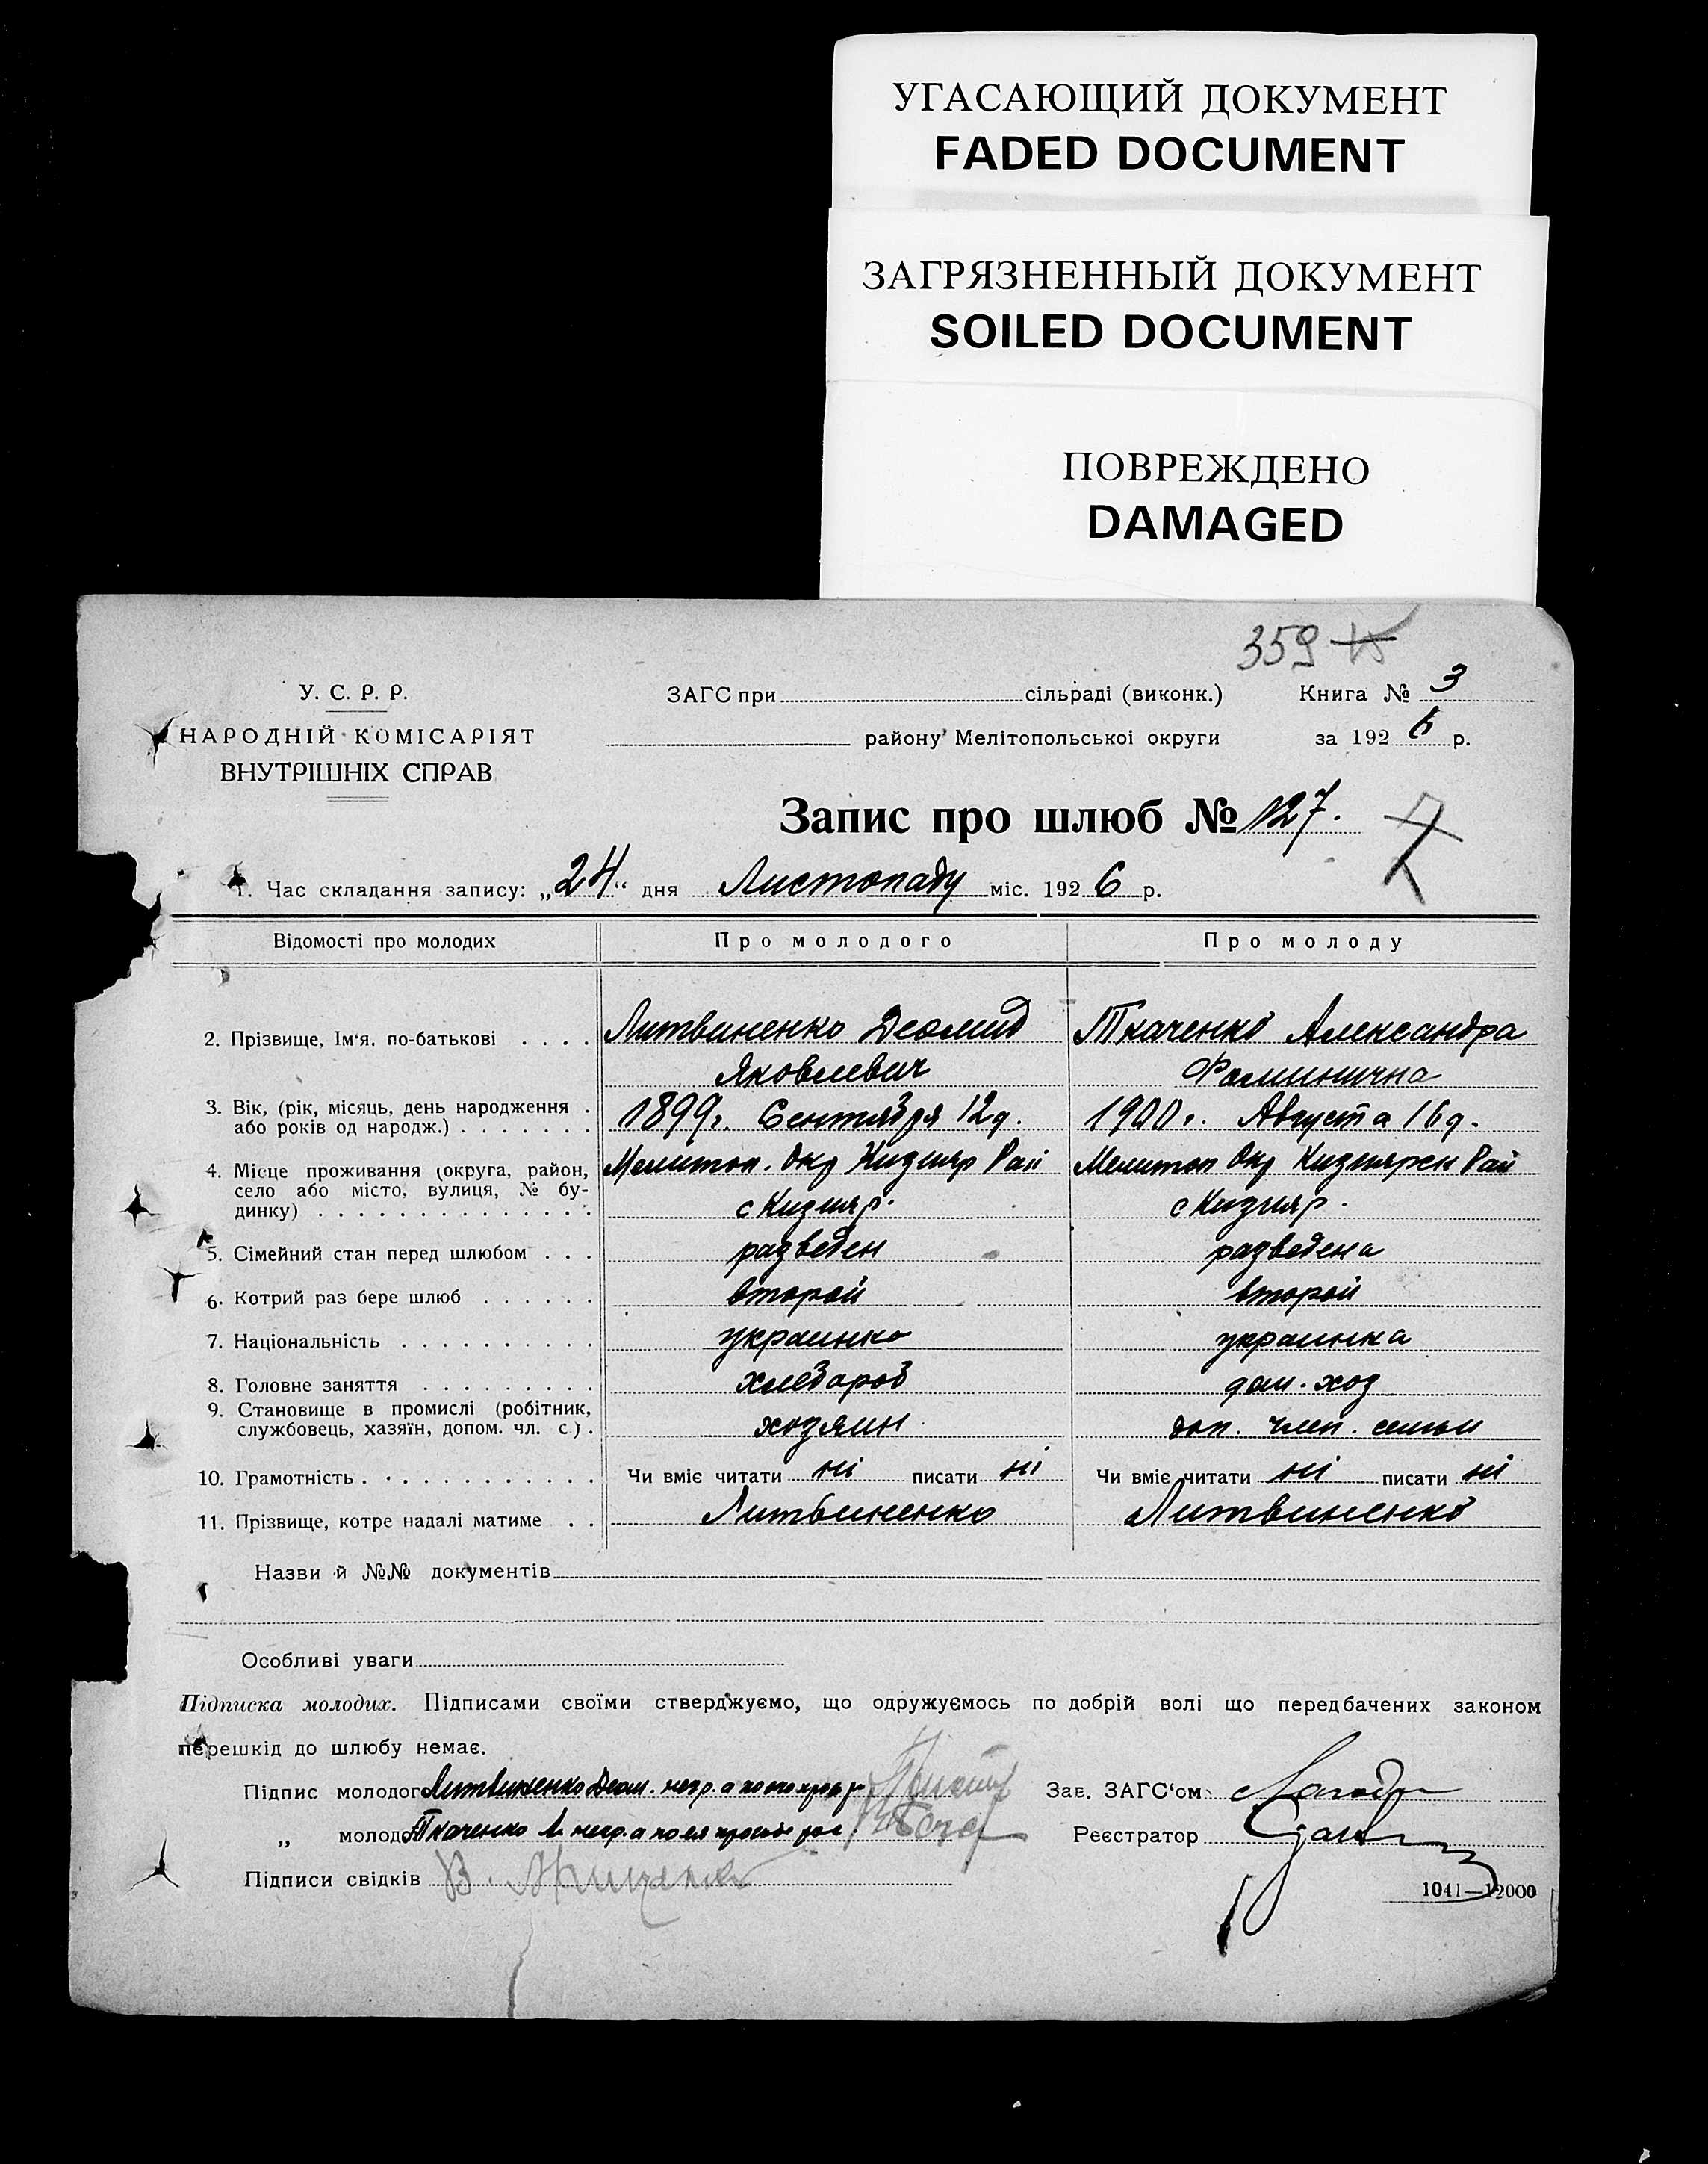 УГАСАЮЩИЙ ДОКУМЕНТ
FADED DOCUMENT
ЗАГРЯЗНЕННЫЙ ДОКУМЕНТ
SOILED DOCUMENT
ПОВРЕЖДЕНО
DAMAGED
359
У. С. Р. Р.
НАРОДНІЙ КОМІСАРІЯТ
ВНУТРІШНІХ СПРАВ
ЗАГС при сільраді (виконк.) Книга № 3
району Мелітопольської округи за 1926 р.
Запис про шлюб № 127.
1. Час складання запису: „24“ дня Листопаду міс. 1926 р.
Відомості про молодих Про молодого Про молоду
2. Прізвище, Ім'я. по-батькові . . . . Литвиненко Деомид Ткаченко Александра
Яковлевич Фоминична
3. Вік, (рік, місяць, день народження . 1899г. Сентября 12д. 1900г. Августа 16д.
або років од народж.) . . . . . . .
4. Місце проживання (округа, район, Мелитоп. Окр Кизияр Рай Мелитоп Окр Кизиярск Рай
село або місто, вулиця, № бу-
динку) . . . . . . . . . . . . . . с Кизияр. с Кизияр.
5. Сімейний стан перед шлюбом . . . разведен разведена
6. Котрий раз бере шлюб . . . . . . второй второй
7. Національність . . . . . . . . . . украинко украинка
8. Головне заняття . . . . . . . . . хлебороб дом. хоз
9. Становище в промислі (робітник,
службовець, хазяїн, допом. чл. с.) . хозяин доп. член. семьи
10. Грамотність . . . . . . . . . . . Чи вміє читати ні писати ні Чи вміє читати ні писати ні
11. Прізвище, котре надалі матиме . . Литвиненко Литвиненко
Назви й №№ документів
Особливі уваги
Підписка молодих. Підписами своїми стверджуємо, що одружуємось по добрій волі що передбачених законом
перешкід до шлюбу немає.
Підпис молодог Литвиненко Деом. негр. а по его Зав. ЗАГС'ом
„ молодо Ткаченко А. негр. а по ея Реєстратор
Підписи свідків В.
1041—12000